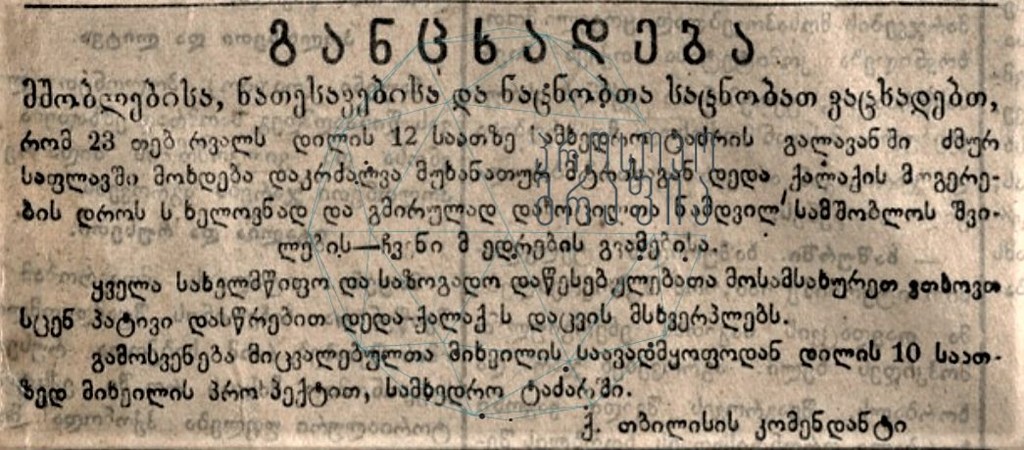 განცხადება
მშობლებისა, ნათესავებისა და ნაცნობთა საცნობათ ვაცხადებთ,
რომ 23 თებერვალს დილის 12 საათზე სამხედრო ტაძრის გალავანში ძმურ
საფლავში მოხდება დაკრძალვა მუხანათურ მტრისაგან დედა ქალაქის მოგერე-
ბის დროს სახელოვნად და გმირულად დახოცილთა ნამდვილ სამშობლოს შვი-
ლების—ჩვენი მხედრების გვამებისა.
ყველა სახელმწიფო და საზოგადო დაწესებულებათა მოსამსახურეთ ვთხოვთ
სცენ პატივი დასწრებით დედა-ქალაქის დაცვის მსხვერპლებს.
გამოსვენება მიცვალებულთა მიხეილის საავადმყოფოდან დილის 10 საათ-
ზედ მიხეილის პროსპექტით, სამხედრო ტაძარში.
ქ. თბილისის კომენდანტი